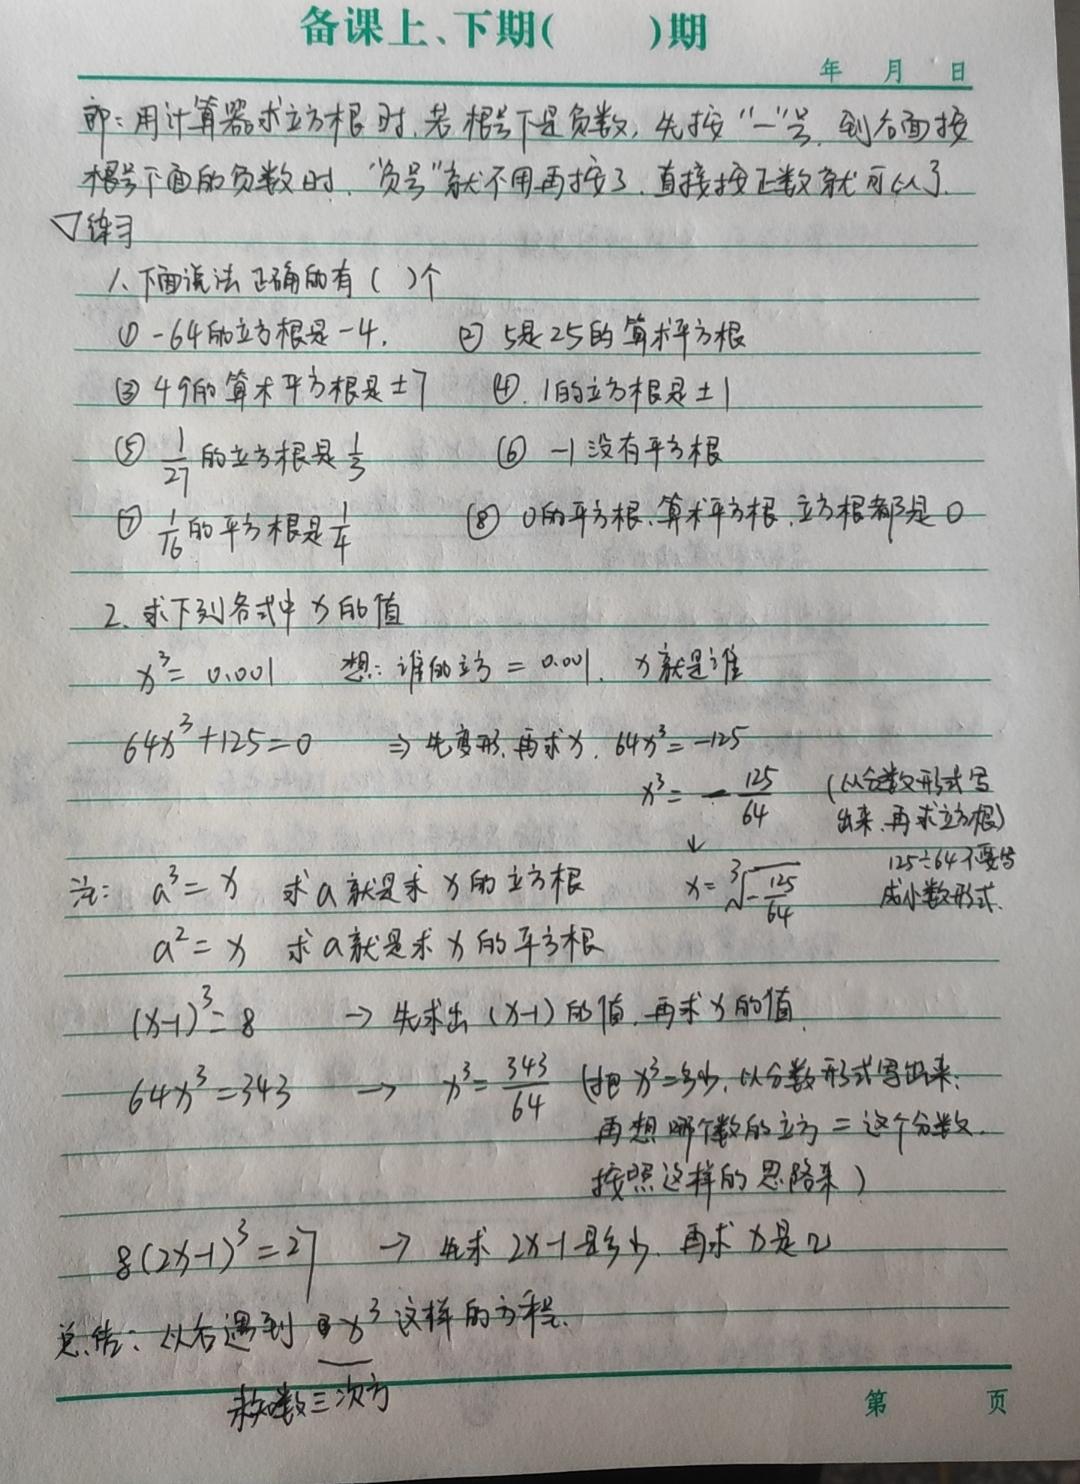 备课上、下期(    )期
年 月 日
即:用计算器求立方根时,若根号下是负数,先按“一”号,到后面按
根号下面的负数时,“负号”就不用再按了,直接按正数就可以了.
▽练习
1、下面说法正确的有( )个
① -64的立方根是-4. ② 5是25的算术平方根
③ 49的算术平方根是±7 ④. 1的立方根是±1
⑤ 1/27 的立方根是 1/3 ⑥ -1没有平方根
⑦ 1/16 的平方根是 1/4 ⑧ 0的平方根、算术平方根、立方根都是0
2、求下列各式中x的值
x³=0.001 想:谁的立方=0.001. x就是谁
64x³+125=0 ⇒先变形,再求x. 64x³=-125
x³= - 125/64 (以分数形式写
出来,再求立方根)
↓
125÷64不要写
成小数形式.
注: a³=x 求a就是求x的立方根 x=∛(-125/64)
a²=x 求a就是求x的平方根
(x-1)³=8 → 先求出(x-1)的值,再求x的值.
64x³=343 → x³=343/64 (把x³=多少,以分数形式写出来;
再想哪个数的立方=这个分数.
按照这样的思路来)
8(2x-1)³=27 → 先求2x-1是多少,再求x是几
总结:以后遇到x³这样的方程.
未知数三次方
第 页